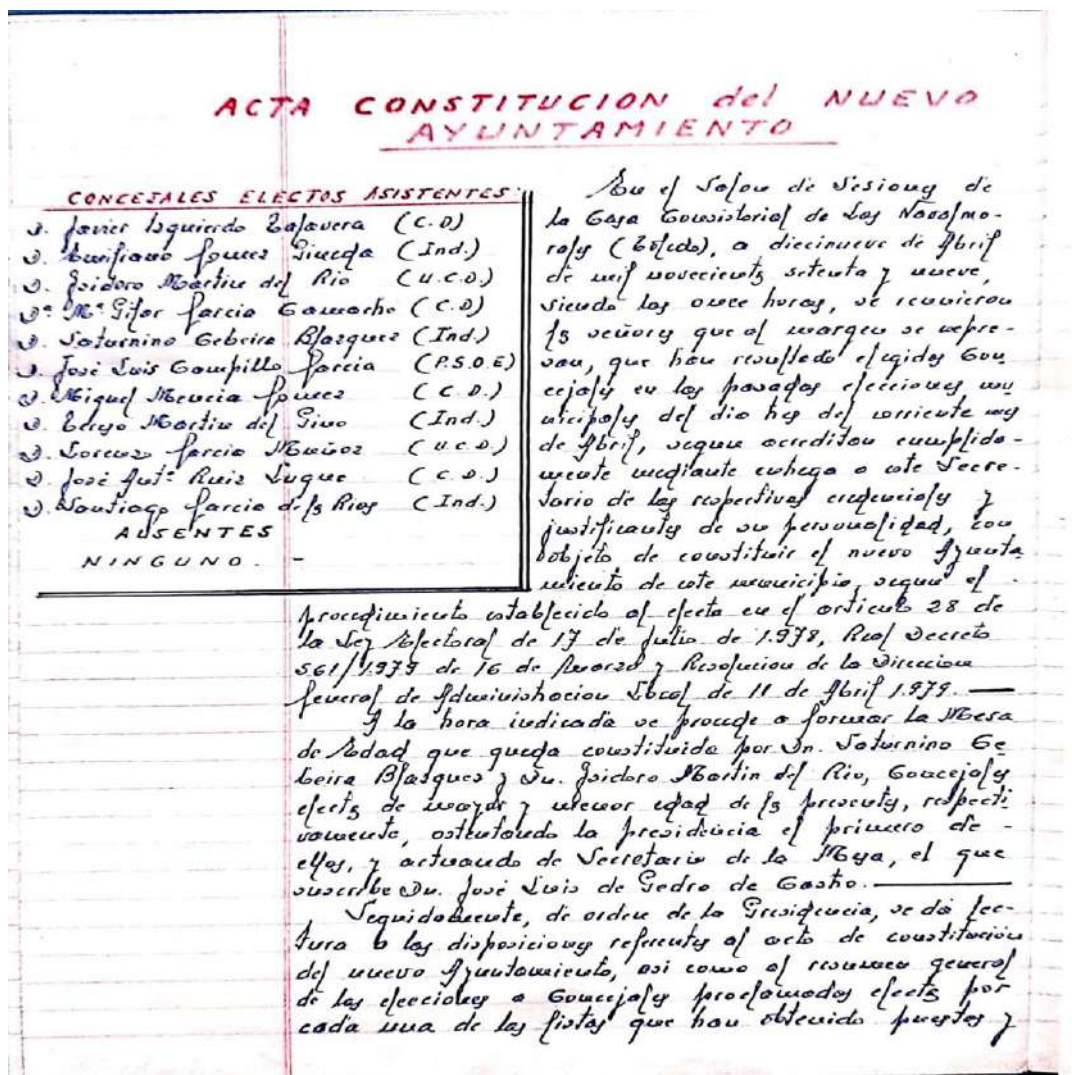 ACTA CONSTITUCION del NUEVO
AYUNTAMIENTO
CONCEJALES ELECTOS ASISTENTES:
D. Javier Izquierdo Talavera (C.D)
D. Emiliano Gomez Pineda (Ind.)
D. Isidoro Martin del Rio (U.C.D.)
Dª Mª Pilar Garcia Camacho (C.D)
D. Saturnino Cebeira Blazquez (Ind.)
D. José Luis Campillo Garcia (P.S.O.E)
D. Miguel Mencia Gomez (C.D.)
D. Martin del Pino (Ind.)
D. Lorenzo Garcia Muñoz (U.C.D.)
D. José Antº Ruiz Luque (C.D.)
D. Santiago Garcia de los Rios (Ind.)
AUSENTES
NINGUNO. -
En el Salon de Sesiones de
la Casa Consistorial de Los Navalmo-
rales (Toledo), a diecinueve de Abril
de mil novecientos setenta y nueve,
siendo las once horas, se reunieron
los señores que al margen se expre-
san, que han resultado elegidos Con
cejales en las pasadas elecciones mu
nicipales del dia tres del corriente mes
de Abril, segun acreditan cumplida-
mente mediante entrega a este Secre-
tario de las respectivas credenciales y
justificantes de su personalidad, con
objeto de constituir el nuevo Ayunta
miento de este municipio, segun el
procedimiento establecido al efecto en el articulo 28 de
la Ley Electoral de 17 de Julio de 1.978, Real Decreto
561/1.979 de 16 de Marzo y Resolucion de la Direccion
General de Administracion Local de 11 de Abril 1.979. —
A la hora indicada se procede a formar la Mesa
de Edad que queda constituida por Dn. Saturnino Ce
beira Blazquez y Dn. Isidoro Martin del Rio, Concejales
electos de mayor y menor edad de los presentes, respecti
vamente, ostentando la presidencia el primero de -
ellos, y actuando de Secretario de la Mesa, el que
suscribe Dn. José Luis de Pedro de Castro. —
Seguidamente, de orden de la Presidencia, se dá lec-
tura a las disposiciones referentes al acto de constitución
del nuevo Ayuntamiento, asi como al resumen general
de las elecciones a Concejales proclamados electos por
cada una de las listas que han obtenido puestos y